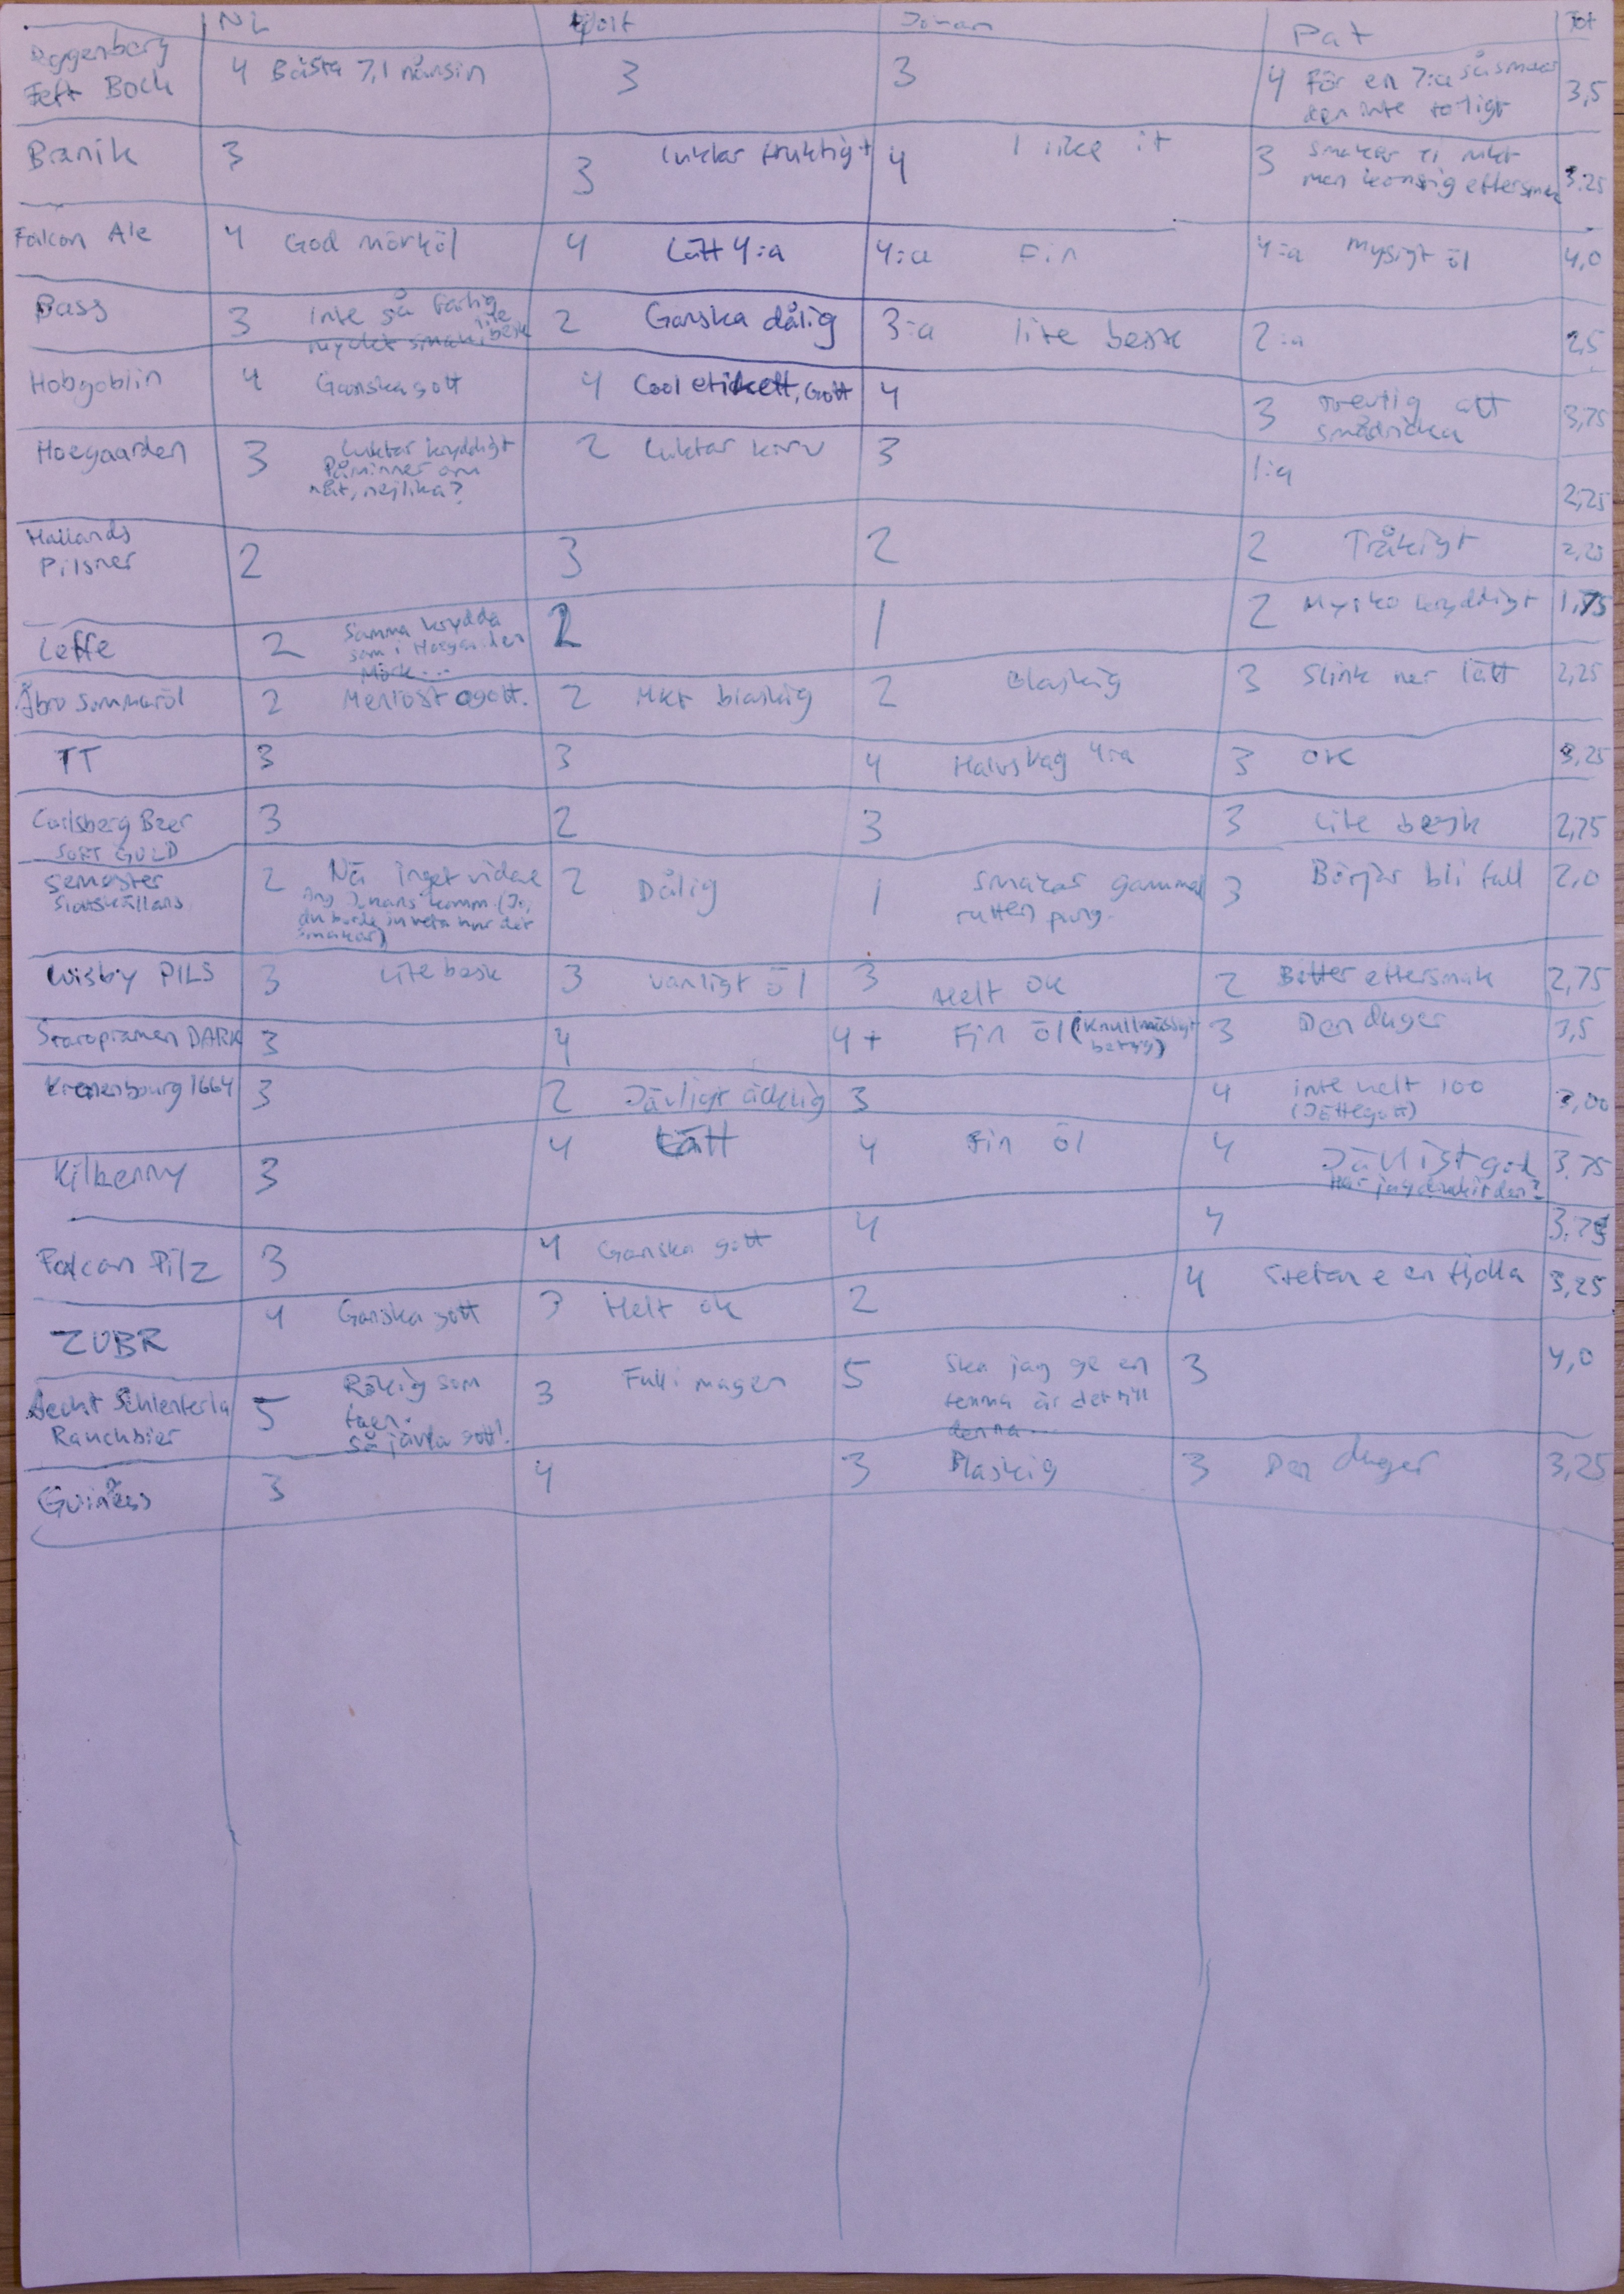 NL Johan Pat Tot
Eggenberg
Fest Bock 4 Bästa 7,1 nånsin 3 3 4 För en 7:a så smakar
den inte roligt 3,5
Branik 3 3 luktar fruktigt 4 I like it 3 smakar ej mkt
men konstig eftersmak 3.25
Falcon Ale 4 God mörköl 4 Lätt 4:a 4:a Fin 4:a Mysigt öl 4,0
Bass 3 Inte så farlig
mycket smak lite besk 2 Ganska dålig 3:a lite besk 2:a 2,5
Hobgoblin 4 Ganska gott 4 Cool etikett, Gott 4 3 trevlig att
smådricka 3,75
Hoegaarden 3 Luktar kryddigt
Påminner om
nåt, nejlika? 2 luktar korv 3 1:a 2,25
Hallands
Pilsner 2 3 2 2 Tråkigt 2,25
Leffe 2 Samma krydda
som i Hoegaarden
Mörk... 2 1 2 Mysko kryddigt 1,75
Åbro Sommaröl 2 Menlöst ogott. 2 Mkt blaskig 2 Blaskig 3 Slink ner lätt 2,25
TT 3 3 4 Halvskag 4:a 3 OK 3,25
Carlsberg Beer
SORT GULD 3 2 3 3 Lite besk 2,75
Semester
Slottskällans 2 Nä inget vidare
Ang Johans komm. (Jo,
du borde ju veta hur det
smakar) 2 Dålig 1 Smakar gammal
rutten pung. 3 Börjar bli full 2,0
Wisby PILS 3 Lite besk 3 vanligt öl 3 Helt OK 2 Bitter eftersmak 2,75
Staropramen DARK 3 4 4+ Fin öl (Knullmässigt
betyg) 3 Den duger 3,5
Kronenbourg 1664 3 2 Jävligt äcklig 3 4 inte helt 100
(Jättegott) 3,00
Kilkenny 3 4 Lätt 4 Fin öl 4 Jävligt god
Har jag druckit den? 3,75
Falcon Pilz 3 4 Ganska gott 4 4 3,75
ZUBR 4 Ganska gott 3 Helt ok 2 4 Stefan e en fjolla 3,25
Aecht Schlenkerla
Rauchbier 5 Rökig som
faen.
Så jävla gott! 3 Full i magen 5 Ska jag ge en
femma är det till
denna... 3 4,0
Guiness 3 4 3 Blaskig 3 Den duger 3,25